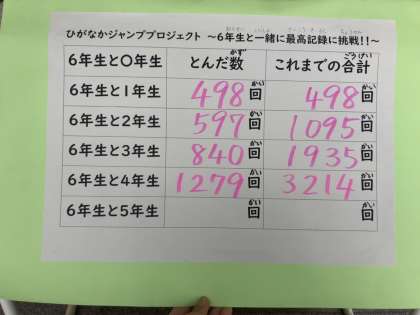 ひがなかジャンププロジェクト ~6年生と一緒に最高記録に挑戦!!~
6年生と〇年生 とんだ数 これまでの合計
6年生と1年生 498回 498回
6年生と2年生 597回 1095回
6年生と3年生 840回 1935回
6年生と4年生 1279回 3214回
6年生と5年生 回 回